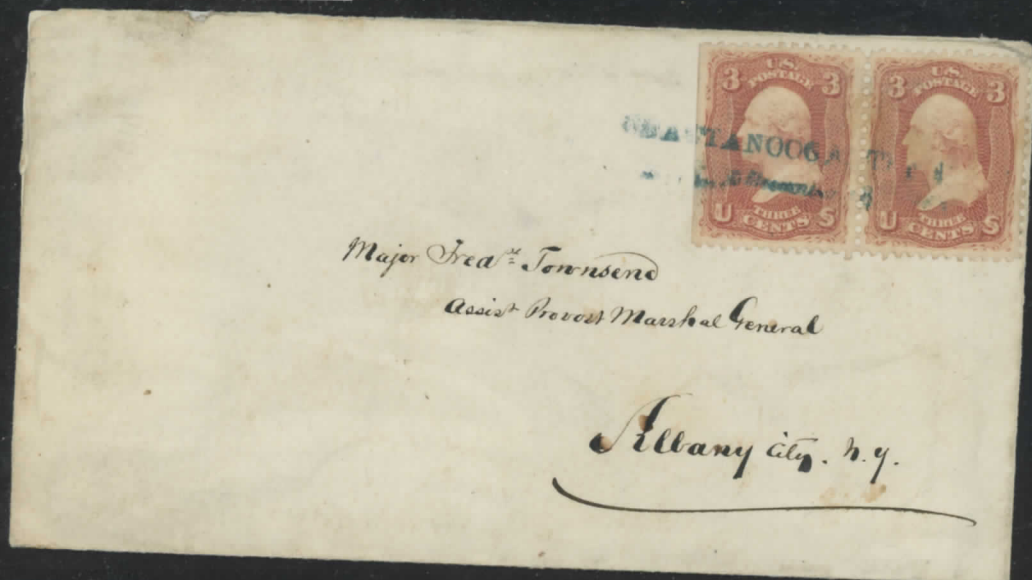 3 U.S. POSTAGE 3
THREE
U CENTS S
3 U.S. POSTAGE 3
THREE
U CENTS S
CHATTANOOGA
Major Fredk Townsend
Assist Provost Marshal General
Albany City. N.Y.